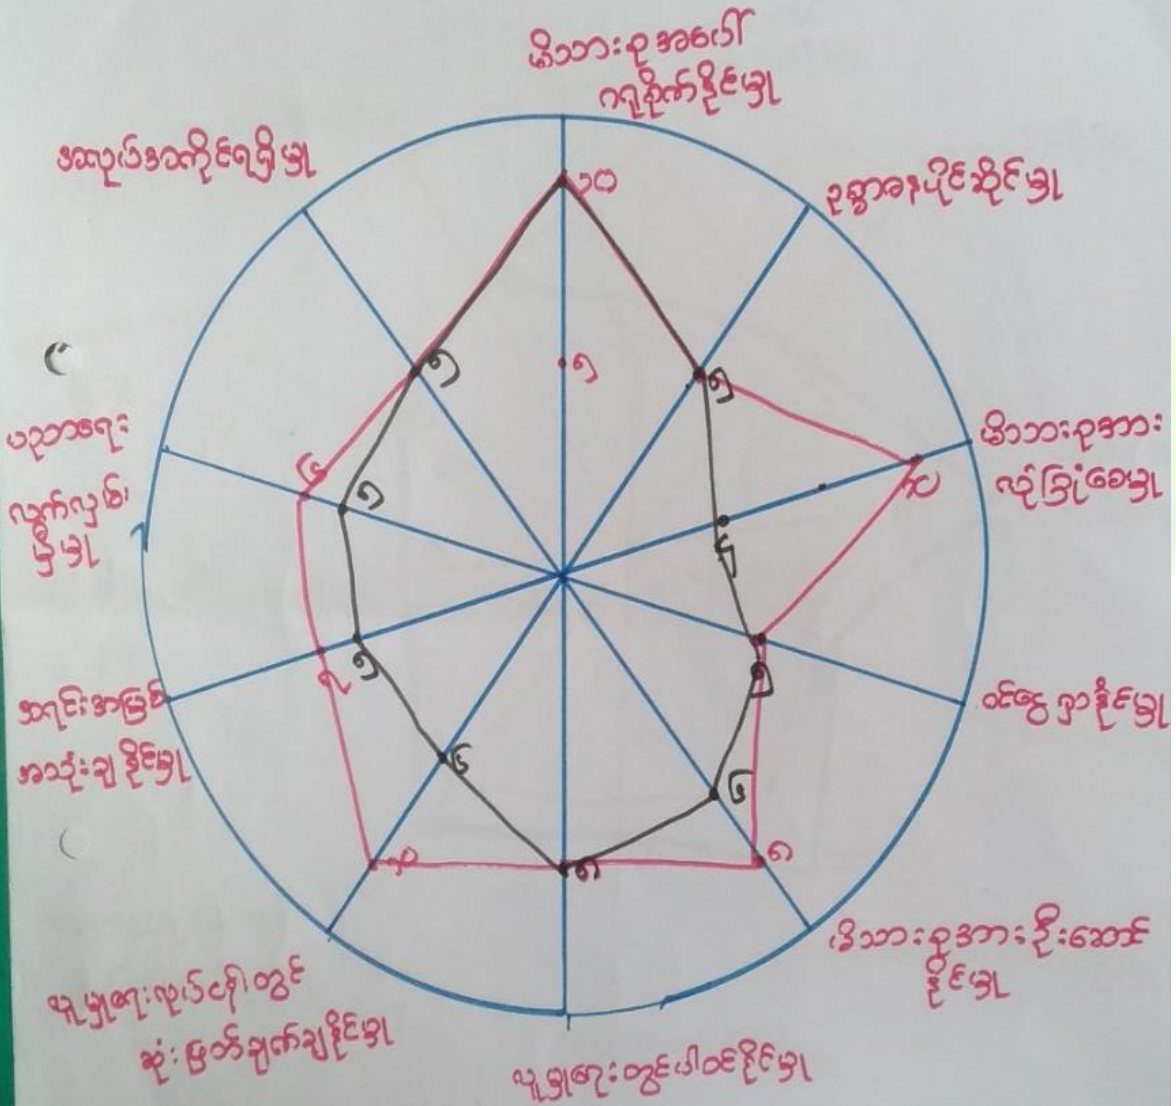 မိသားစုအပေါ်
ဂရုစိုက်နိုင်မှု
ဥစ္စာဓနပိုင်ဆိုင်မှု
မိသားစုအား
လုံခြုံစေမှု
ဝင်ငွေရှာနိုင်မှု
မိသားစုအားဦးဆောင်
နိုင်မှု
လူမှုရေးတွင်ပါဝင်နိုင်မှု
လူမှုရေးလုပ်ငန်းတွင်
ဆုံးဖြတ်ချက်ချနိုင်မှု
အရင်းအမြစ်
အသုံးချနိုင်မှု
ပညာရေး
လက်လှမ်း
မှီမှု
အလုပ်အကိုင်ရရှိမှု
၁၀
၅
၅
၁၀
၅
၈
၆
၈
၁၀
၆
၇
၅
၆
၅
၅